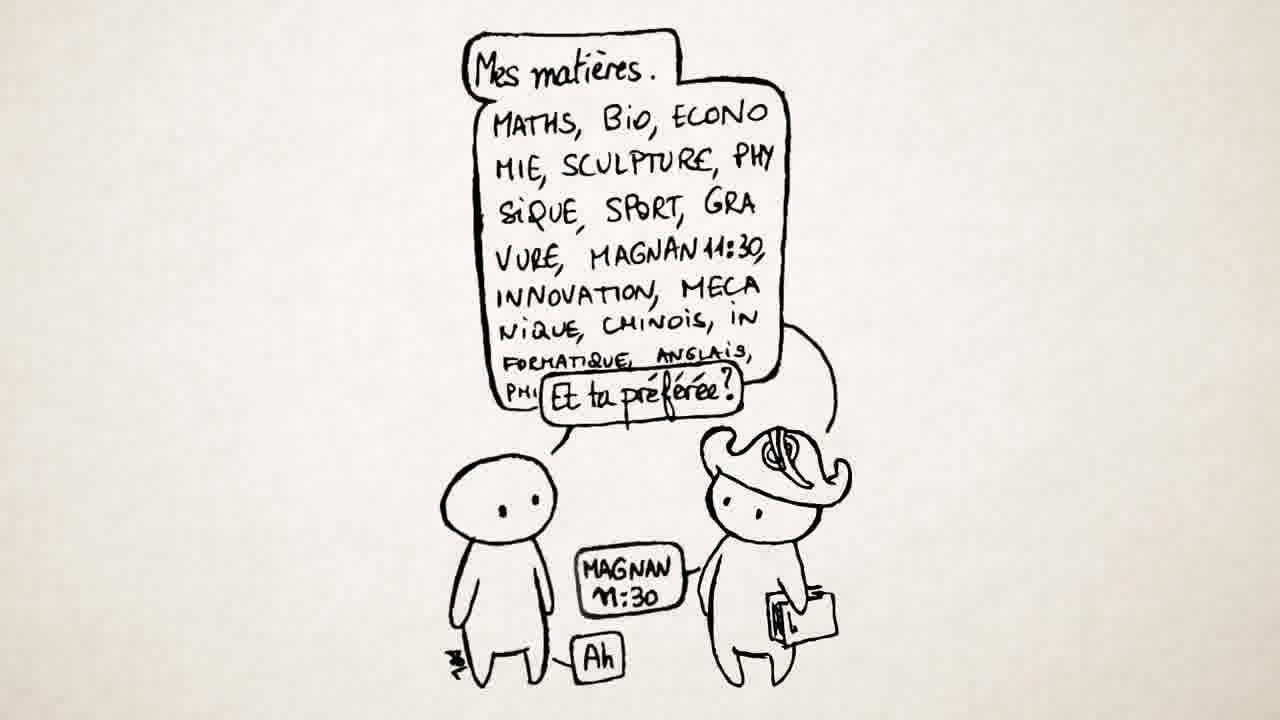 Mes matières.
MATHS, BiO, ECONO
MIE, SCULPTURE, PHY
SiQUE, SPORT, GRA
VURE, MAGNAN 11:30,
INNOVATION, MECA
NiQUE, CHINOIS, IN
FORMATIQUE, ANGLAIS,
PHI
Et ta préférée?
MAGNAN
11:30
Ah